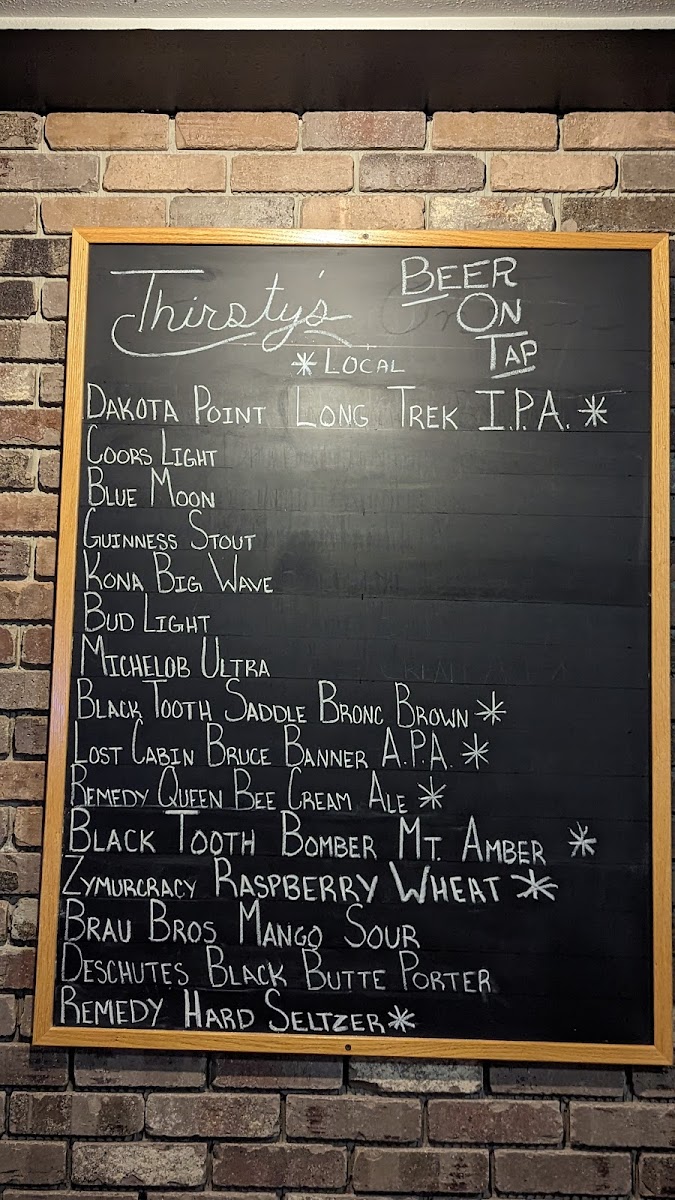 Thirsty's
BEER
ON
TAP
*LOCAL
DAKOTA POINT LONG TREK I.P.A. *
COORS LIGHT
BLUE MOON
GUINNESS STOUT
KONA BIG WAVE
BUD LIGHT
MICHELOB ULTRA
BLACK TOOTH SADDLE BRONC BROWN *
LOST CABIN BRUCE BANNER A.P.A. *
REMEDY QUEEN BEE CREAM ALE *
BLACK TOOTH BOMBER MT. AMBER *
ZYMURCRACY RASPBERRY WHEAT *
BRAU BROS MANGO SOUR
DESCHUTES BLACK BUTTE PORTER
REMEDY HARD SELTZER *